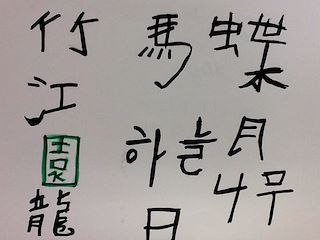 竹
江
園
龍
馬
하늘
日
蝶
月
나무